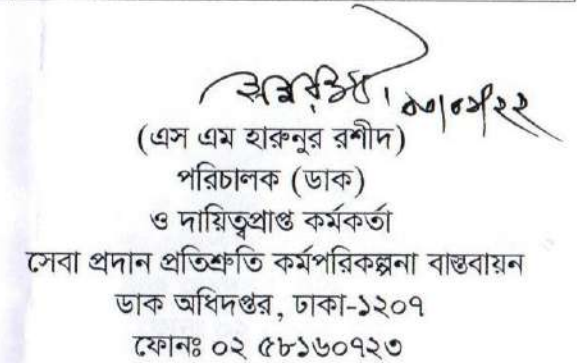 (এস এম হারুনুর রশীদ)
পরিচালক (ডাক)
ও দায়িত্বপ্রাপ্ত কর্মকর্তা
সেবা প্রদান প্রতিশ্রুতি কর্মপরিকল্পনা বাস্তবায়ন
ডাক অধিদপ্তর, ঢাকা-১২০৭
ফোনঃ ০২ ৫৮১৬০৭২৩